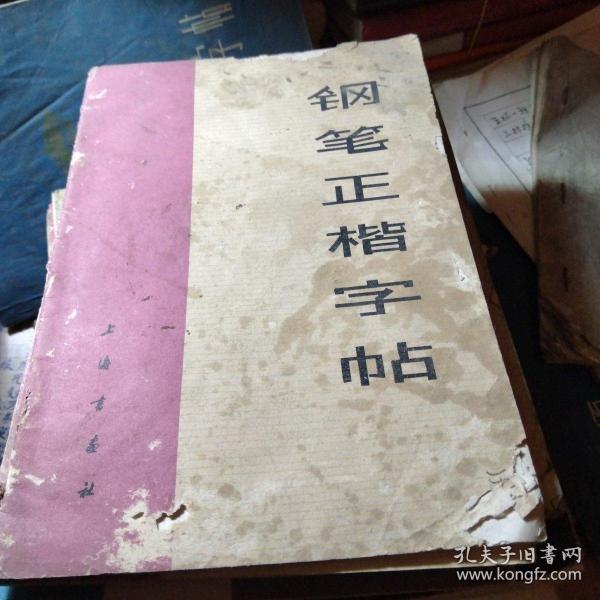 钢笔正楷字帖
上海书画社
字帖
孔夫子旧书网
www.kongfz.com